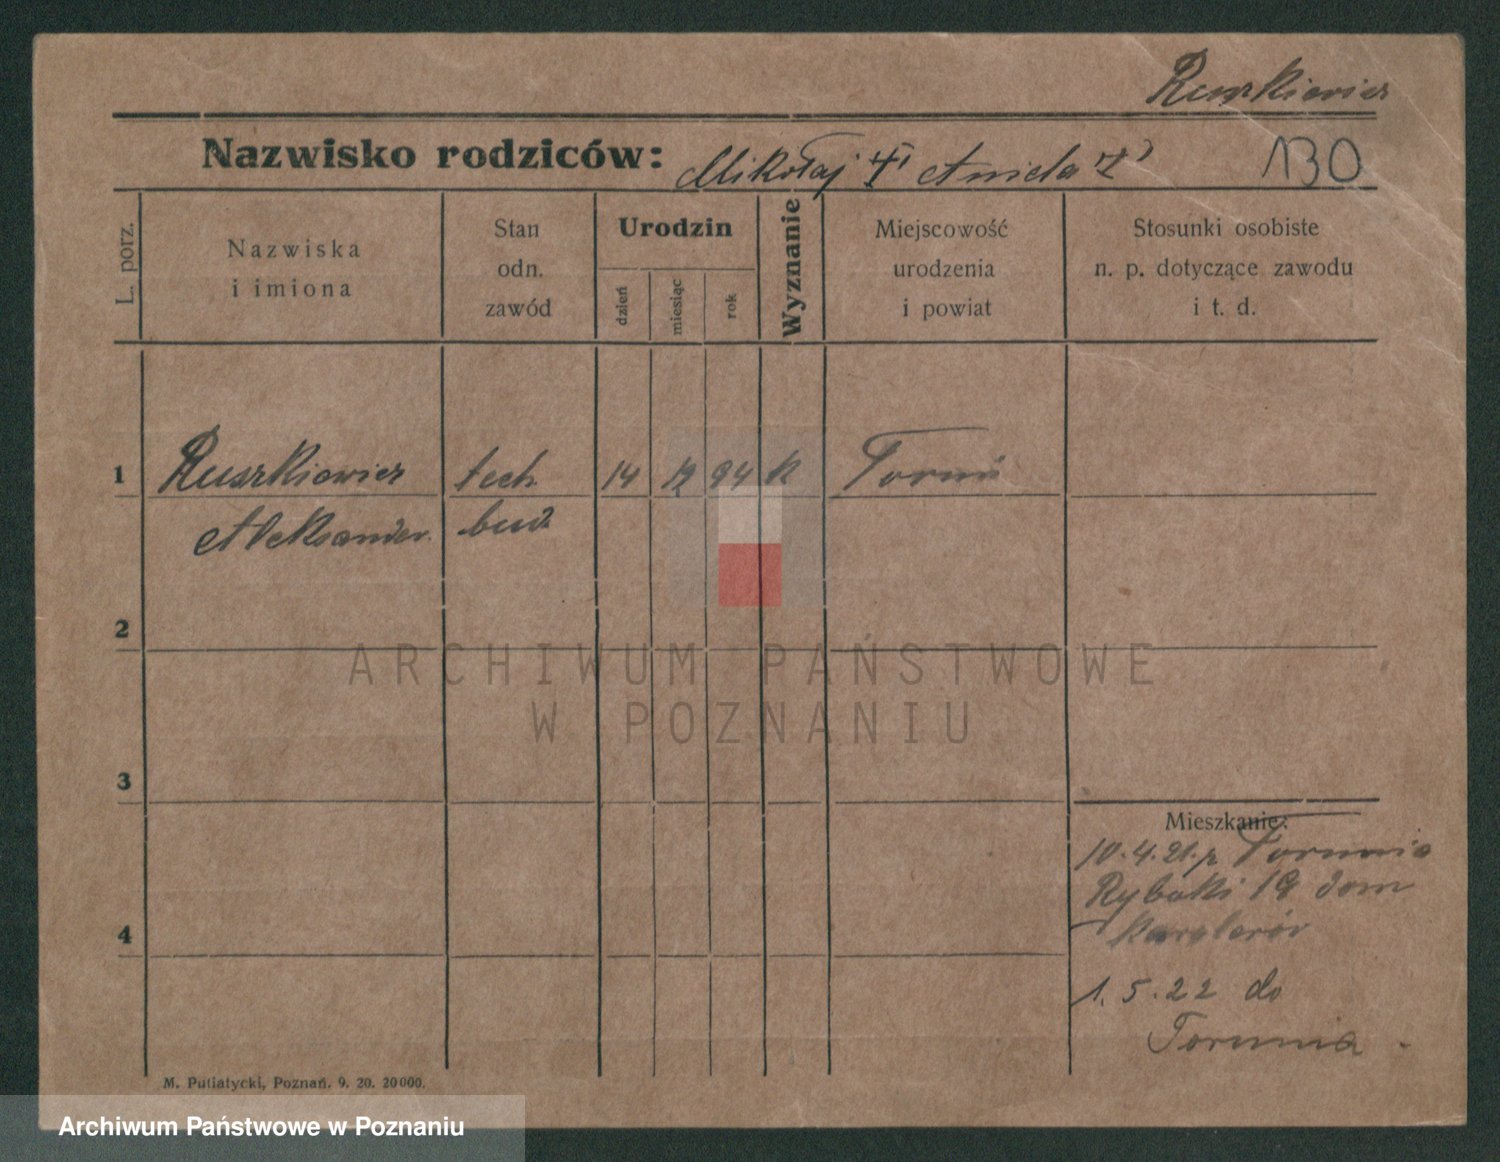 Ruszkiewicz
Nazwisko rodziców: Mikołaj Aniela
130
L. porz.
Nazwiska
i imiona
Stan
odn.
zawód
Urodzin
dzień
miesiąc
rok
Wyznanie
Miejscowość
urodzenia
i powiat
Stosunki osobiste
n. p. dotyczące zawodu
i t. d.
1 Ruszkiewicz tech. 14 94 k Toruń
Aleksander. bud.
2
3
4
Mieszkanie:
10.4.21. z Torunia
Rybaki 19 dom
kawalerów
1.5.22 do
Torunia.
M. Putiatycki, Poznań. 9. 20. 20000.
ARCHIWUM PAŃSTWOWE
W POZNANIU
Archiwum Państwowe w Poznaniu